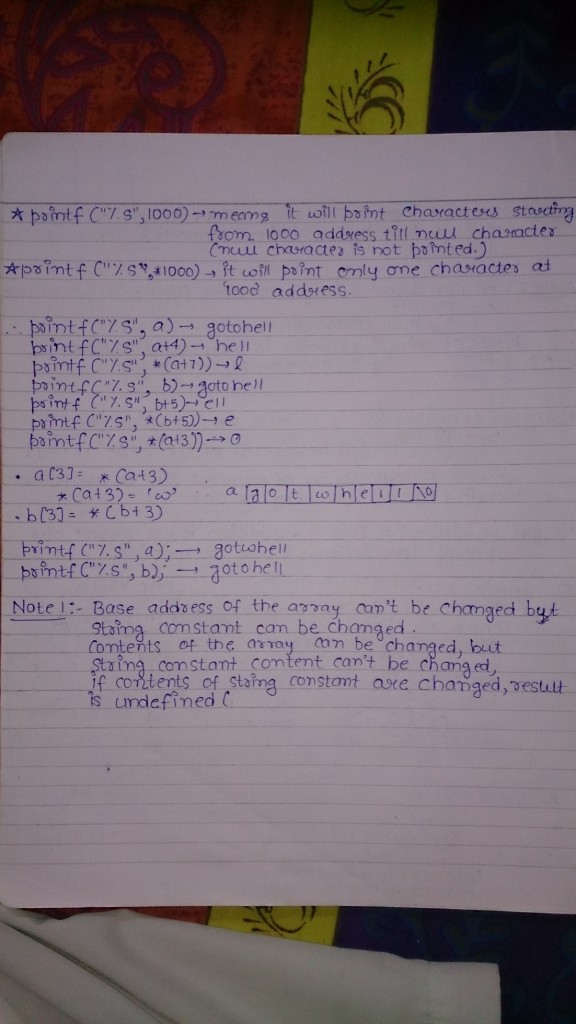 * printf ("%s", 1000) → means it will print characters starting
from 1000 address till null character
(null character is not printed.)
* printf ("%s", *1000) → it will print only one character at
1000 address.
∴ printf ("%s", a) → gotohell
printf ("%s", a+4) → hell
printf ("%s", *(a+7)) → l
printf ("%s", b) → gotohell
printf ("%s", b+5) → ell
printf ("%s", *(b+5)) → e
printf ("%s", *(a+3)) → o
• a[3] = *(a+3)
*(a+3) = 'w' ∴ a |g|o|t|w|h|e|l|l|\0|
• b[3] = *(b+3)
printf ("%s", a); → gotwhell
printf ("%s", b); → gotohell
Note 1:- Base address of the array can't be changed but
string constant can be changed.
Contents of the array can be changed, but
string constant content can't be changed,
if contents of string constant are changed, result
is undefined (